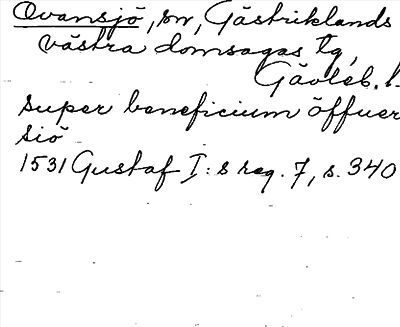 Ovansjö, sn, Gästriklands
västra domsagas tg,
Gävleb. l.
super beneficium öffuer
siö
1531 Gustaf I:s reg. 7, s. 340